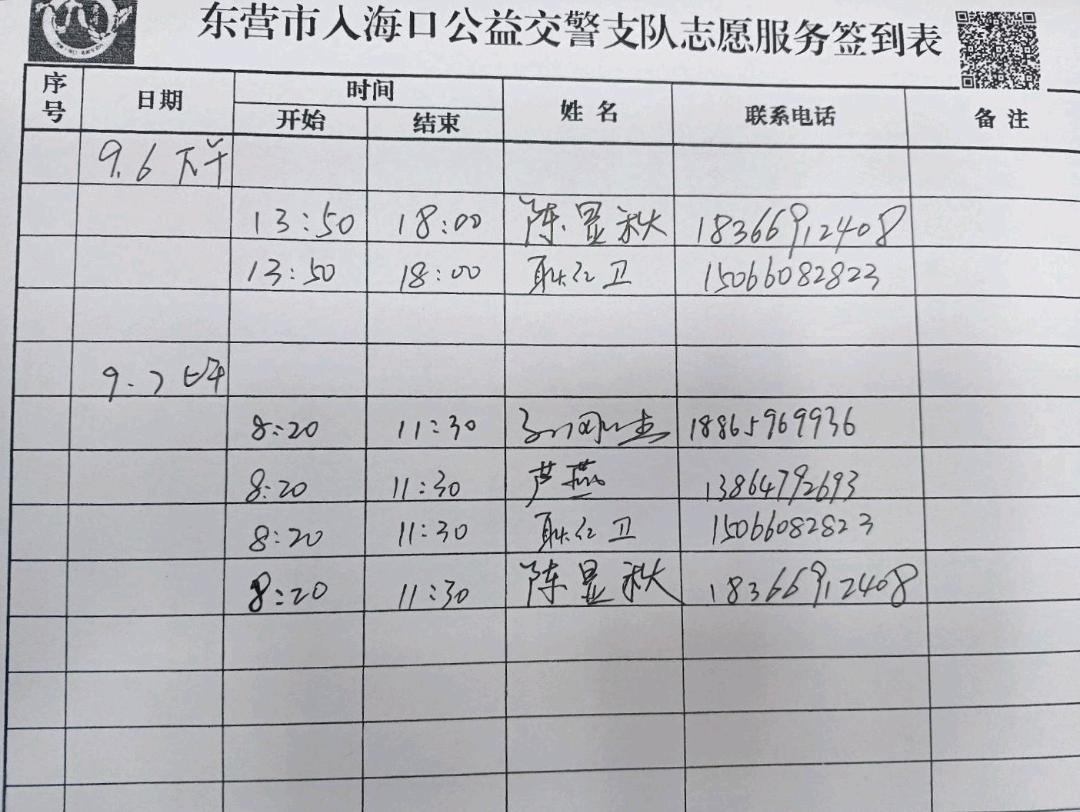 东营市入海口公益交警支队志愿服务签到表
序号 日期 时间 姓名 联系电话 备注
开始 结束
9.6 下午
13:50 18:00 陈显秋 18366912408
13:50 18:00 耿红卫 15066082823
9.7 上午
8:20 11:30 18865969936
8:20 11:30 芦燕 13864792693
8:20 11:30 耿红卫 15066082823
8:20 11:30 陈显秋 18366912408